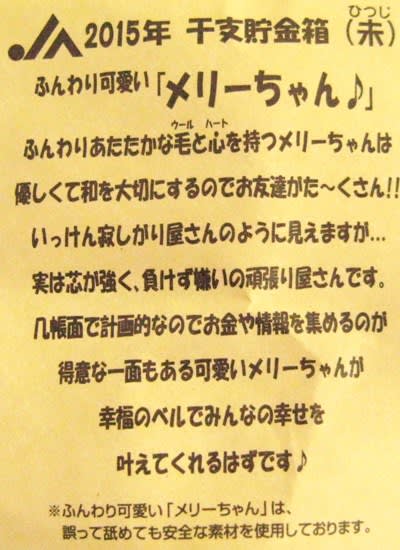 JA 2015年 干支貯金箱（未）
ひつじ
ふんわり可愛い「メリーちゃん♪」
ウール ハート
ふんわりあたたかな毛と心を持つメリーちゃんは
優しくて和を大切にするのでお友達がた〜くさん!!
いっけん寂しがり屋さんのように見えますが…
実は芯が強く、負けず嫌いの頑張り屋さんです。
几帳面で計画的なのでお金や情報を集めるのが
得意な一面もある可愛いメリーちゃんが
幸福のベルでみんなの幸せを
叶えてくれるはずです♪
※ふんわり可愛い「メリーちゃん」は、
誤って舐めても安全な素材を使用しております。